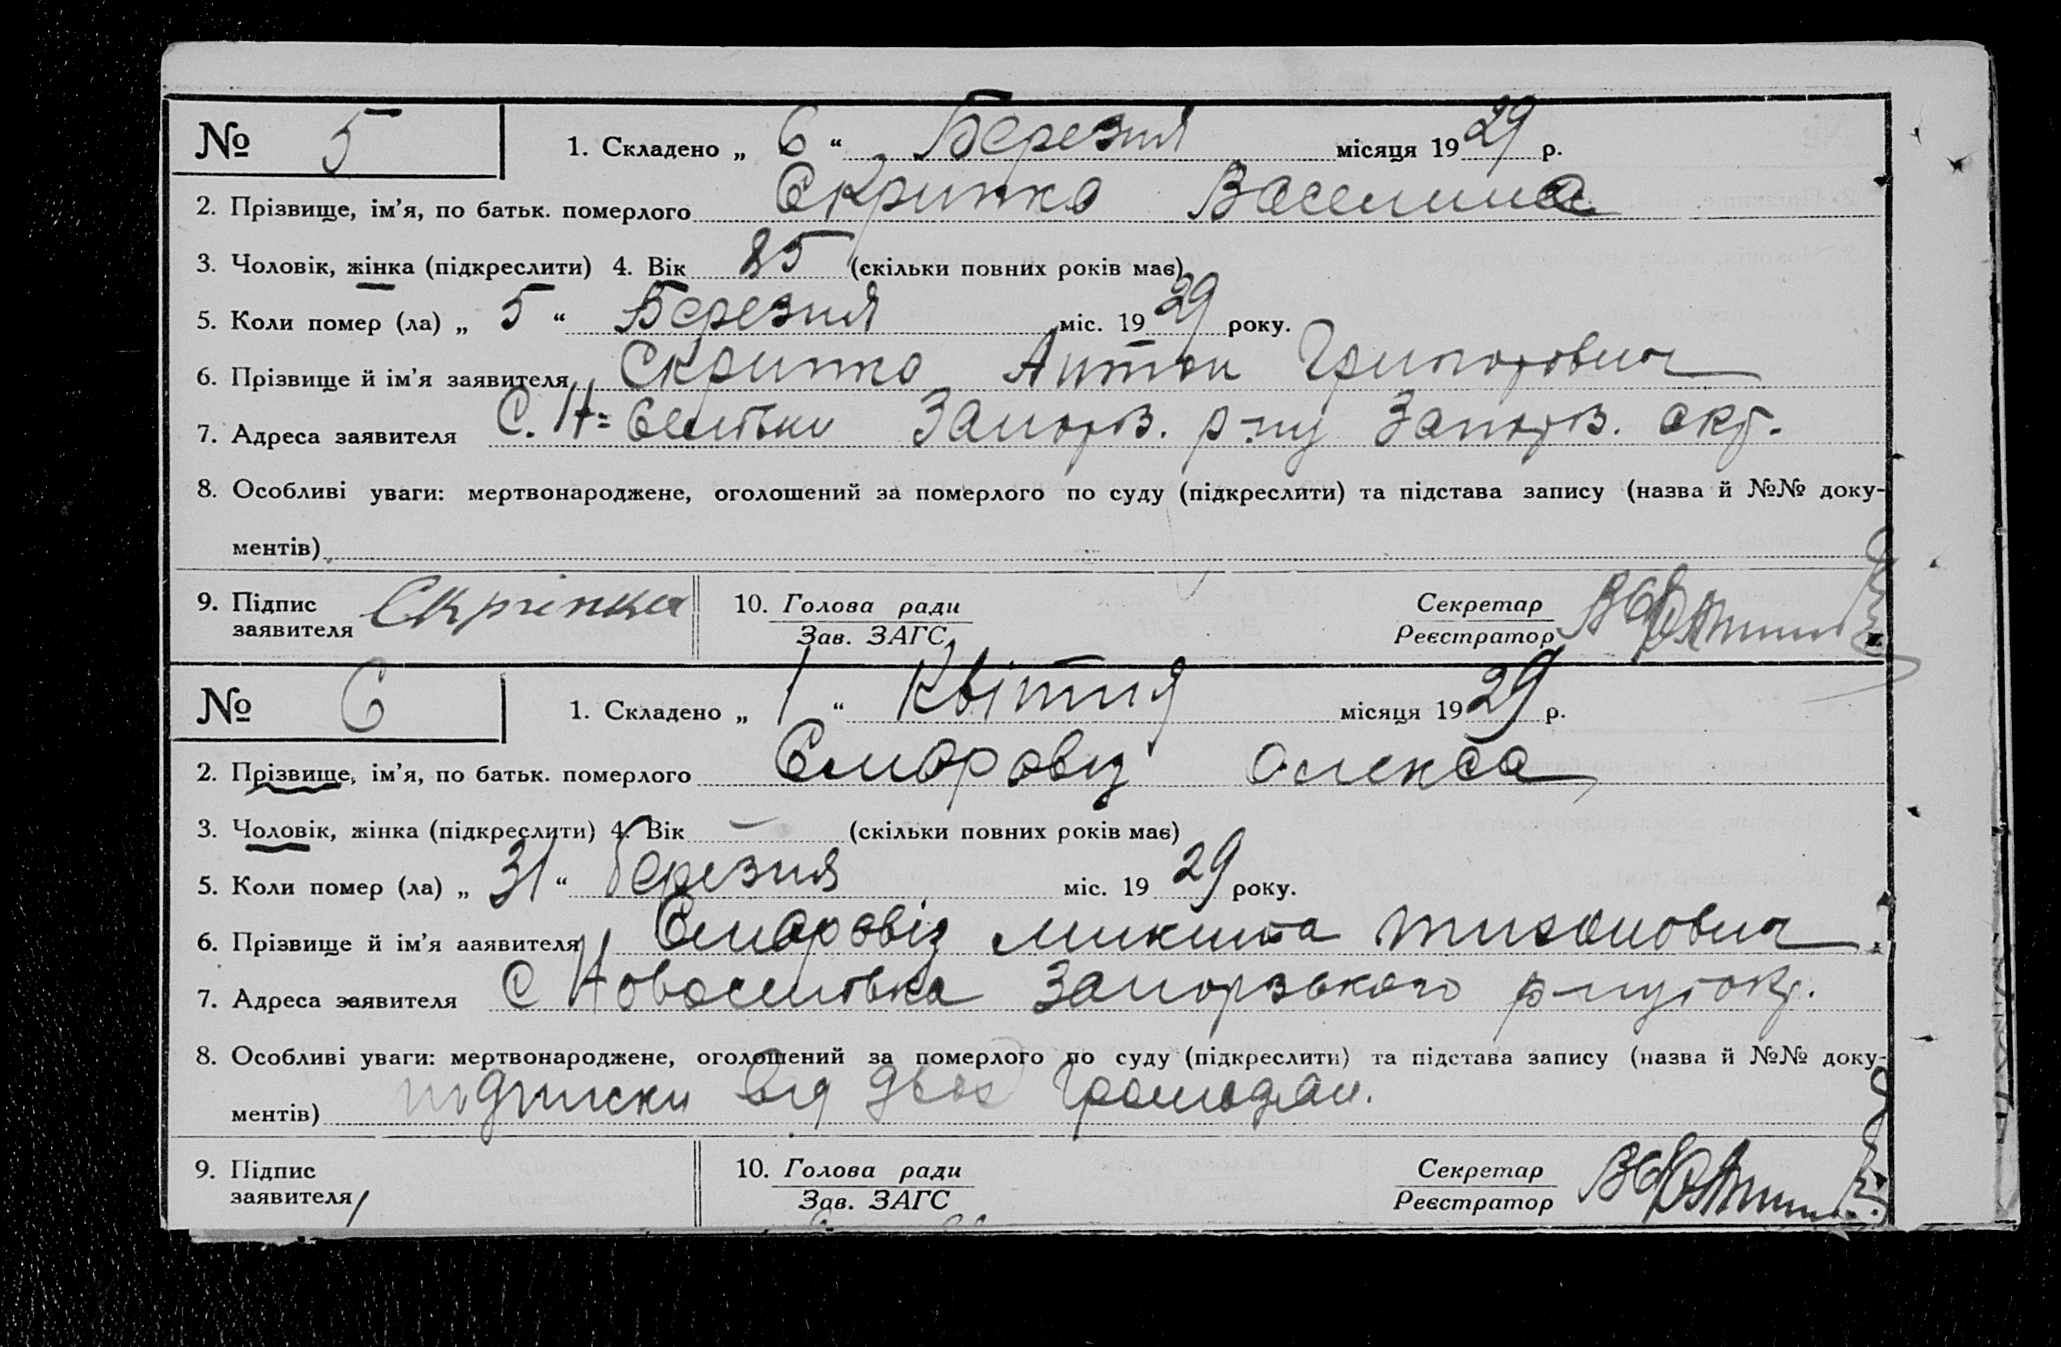 № 5 1. Складено „ 6 “ Березня місяця 1929 р.
2. Прізвище, ім’я, по батьк. померлого Скрипка Васелина
3. Чоловік, жінка (підкреслити) 4. Вік 85 (скільки повних років має)
5. Коли помер (ла) „ 5 “ Березня міс. 1929 року.
6. Прізвище й ім’я заявителя Скрипка Антон Григорович
7. Адреса заявителя С. Н=Селівки Запоріз. р-ну Запоріз. окр.
8. Особливі уваги: мертвонароджене, оголошений за померлого по суду (підкреслити) та підстава запису (назва й №№ доку-
ментів)
9. Підпис заявителя Скрипка 10. Голова ради Секретар
Зав. ЗАГС Реєстратор
№ 6 1. Складено „ 1 “ Квітня місяця 1929 р.
2. Прізвище, ім’я, по батьк. померлого Смаровіз Олекса
3. Чоловік, жінка (підкреслити) 4. Вік – (скільки повних років має)
5. Коли помер (ла) „ 31 “ березня міс. 1929 року.
6. Прізвище й ім’яааявителя Смаровіз Микита Тиханович
7. Адреса заявителя С Новоселівка Запорізького р-ну і окр.
8. Особливі уваги: мертвонароджене, оголошений за померлого по суду (підкреслити) та підстава запису (назва й №№ доку-
ментів) підписки від двох громадян.
9. Підпис заявителя 10. Голова ради Секретар
Зав. ЗАГС Реєстратор